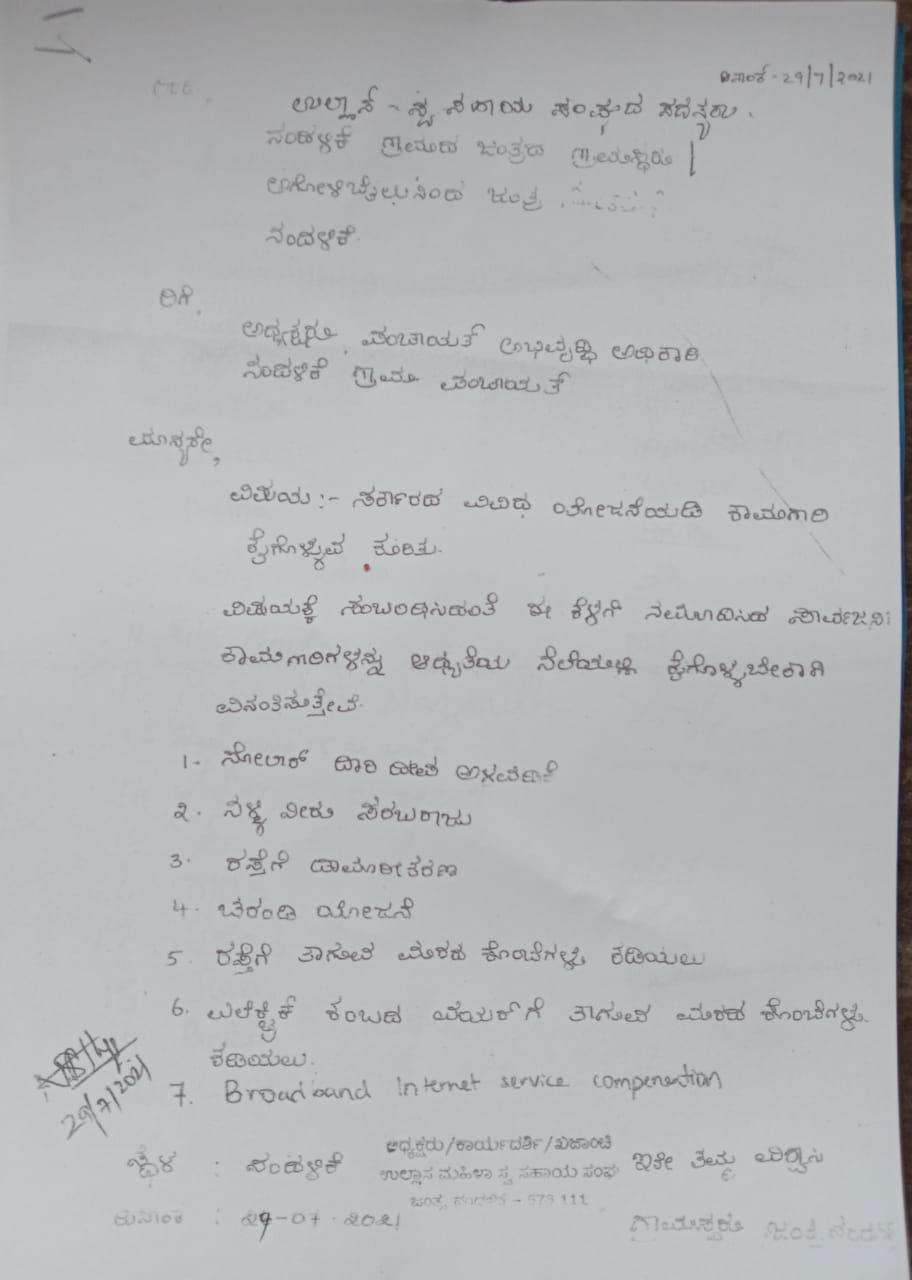 ದಿನಾಂಕ - 29/7/2021
ಉಲ್ಲಾಸ - ಸ್ವ ಸಹಾಯ ಸಂಘದ ಸದಸ್ಯರು.
ನಂದಳಿಕೆ ಗ್ರಾಮದ ಜಂತ್ರದ ಗ್ರಾಮಸ್ಥರು
ಜಂತ್ರ
ನಂದಳಿಕೆ.
ರಿಗೆ,
ಅಧ್ಯಕ್ಷರು, ಪಂಚಾಯತ್ ಅಭಿವೃದ್ಧಿ ಅಧಿಕಾರಿ
ನಂದಳಿಕೆ ಗ್ರಾಮ ಪಂಚಾಯತ್
ಮಾನ್ಯರೇ,
ವಿಷಯ :- ಸರ್ಕಾರದ ವಿವಿಧ ಯೋಜನೆಯಡಿ ಕಾಮಗಾರಿ
ಕೈಗೊಳ್ಳುವ ಕುರಿತು.
ವಿಷಯಕ್ಕೆ ಸಂಬಂಧಿಸಿದಂತೆ ಈ ಕೆಳಗೆ ನಮೂದಿಸಿದ ಸಾರ್ವಜನಿ
ಕಾಮಗಾರಿಗಳನ್ನು ಆದ್ಯತೆಯ ನೆಲೆಯಲ್ಲಿ ಕೈಗೊಳ್ಳಬೇಕಾಗಿ
ವಿನಂತಿಸುತ್ತೇವೆ.
1. ಸೋಲಾರ್ ದಾರಿ ದೀಪ ಅಳವಡಿಕೆ
೨. ನಳ್ಳಿ ನೀರು ಸರಬರಾಜು
3. ರಸ್ತೆಗೆ ಡಾಮರೀಕರಣ
4. ಚರಂಡಿ ಯೋಜನೆ
5. ರಸ್ತೆಗೆ ತಾಗುವ ಮರದ ಕೊಂಬೆಗಳನ್ನು ಕಡಿಯಲು
6. ಎಲೆಕ್ಟ್ರಿಕ್ ಕಂಬದ ವಯರ್ ಗೆ ತಾಗುವ ಮರದ ಕೊಂಬೆಗಳನ್ನು
ಕಡಿಯಲು.
7. Broadband Internet service compenention
29/7/2021
ಸ್ಥಳ : ನಂದಳಿಕೆ
ಅಧ್ಯಕ್ಷರು/ಕಾರ್ಯದರ್ಶಿ/ಖಜಾಂಚಿ
ಉಲ್ಲಾಸ ಮಹಿಳಾ ಸ್ವ ಸಹಾಯ ಸಂಘ
ಜಂತ್ರ, ನಂದಳಿಕೆ - 576 111
ಇತೀ ತಮ್ಮ ವಿಶ್ವಾಸಿ
ದಿನಾಂಕ : 29-07-2021
ಗ್ರಾಮಸ್ಥರು ಜಂತ್ರ ನಂದಳಿ